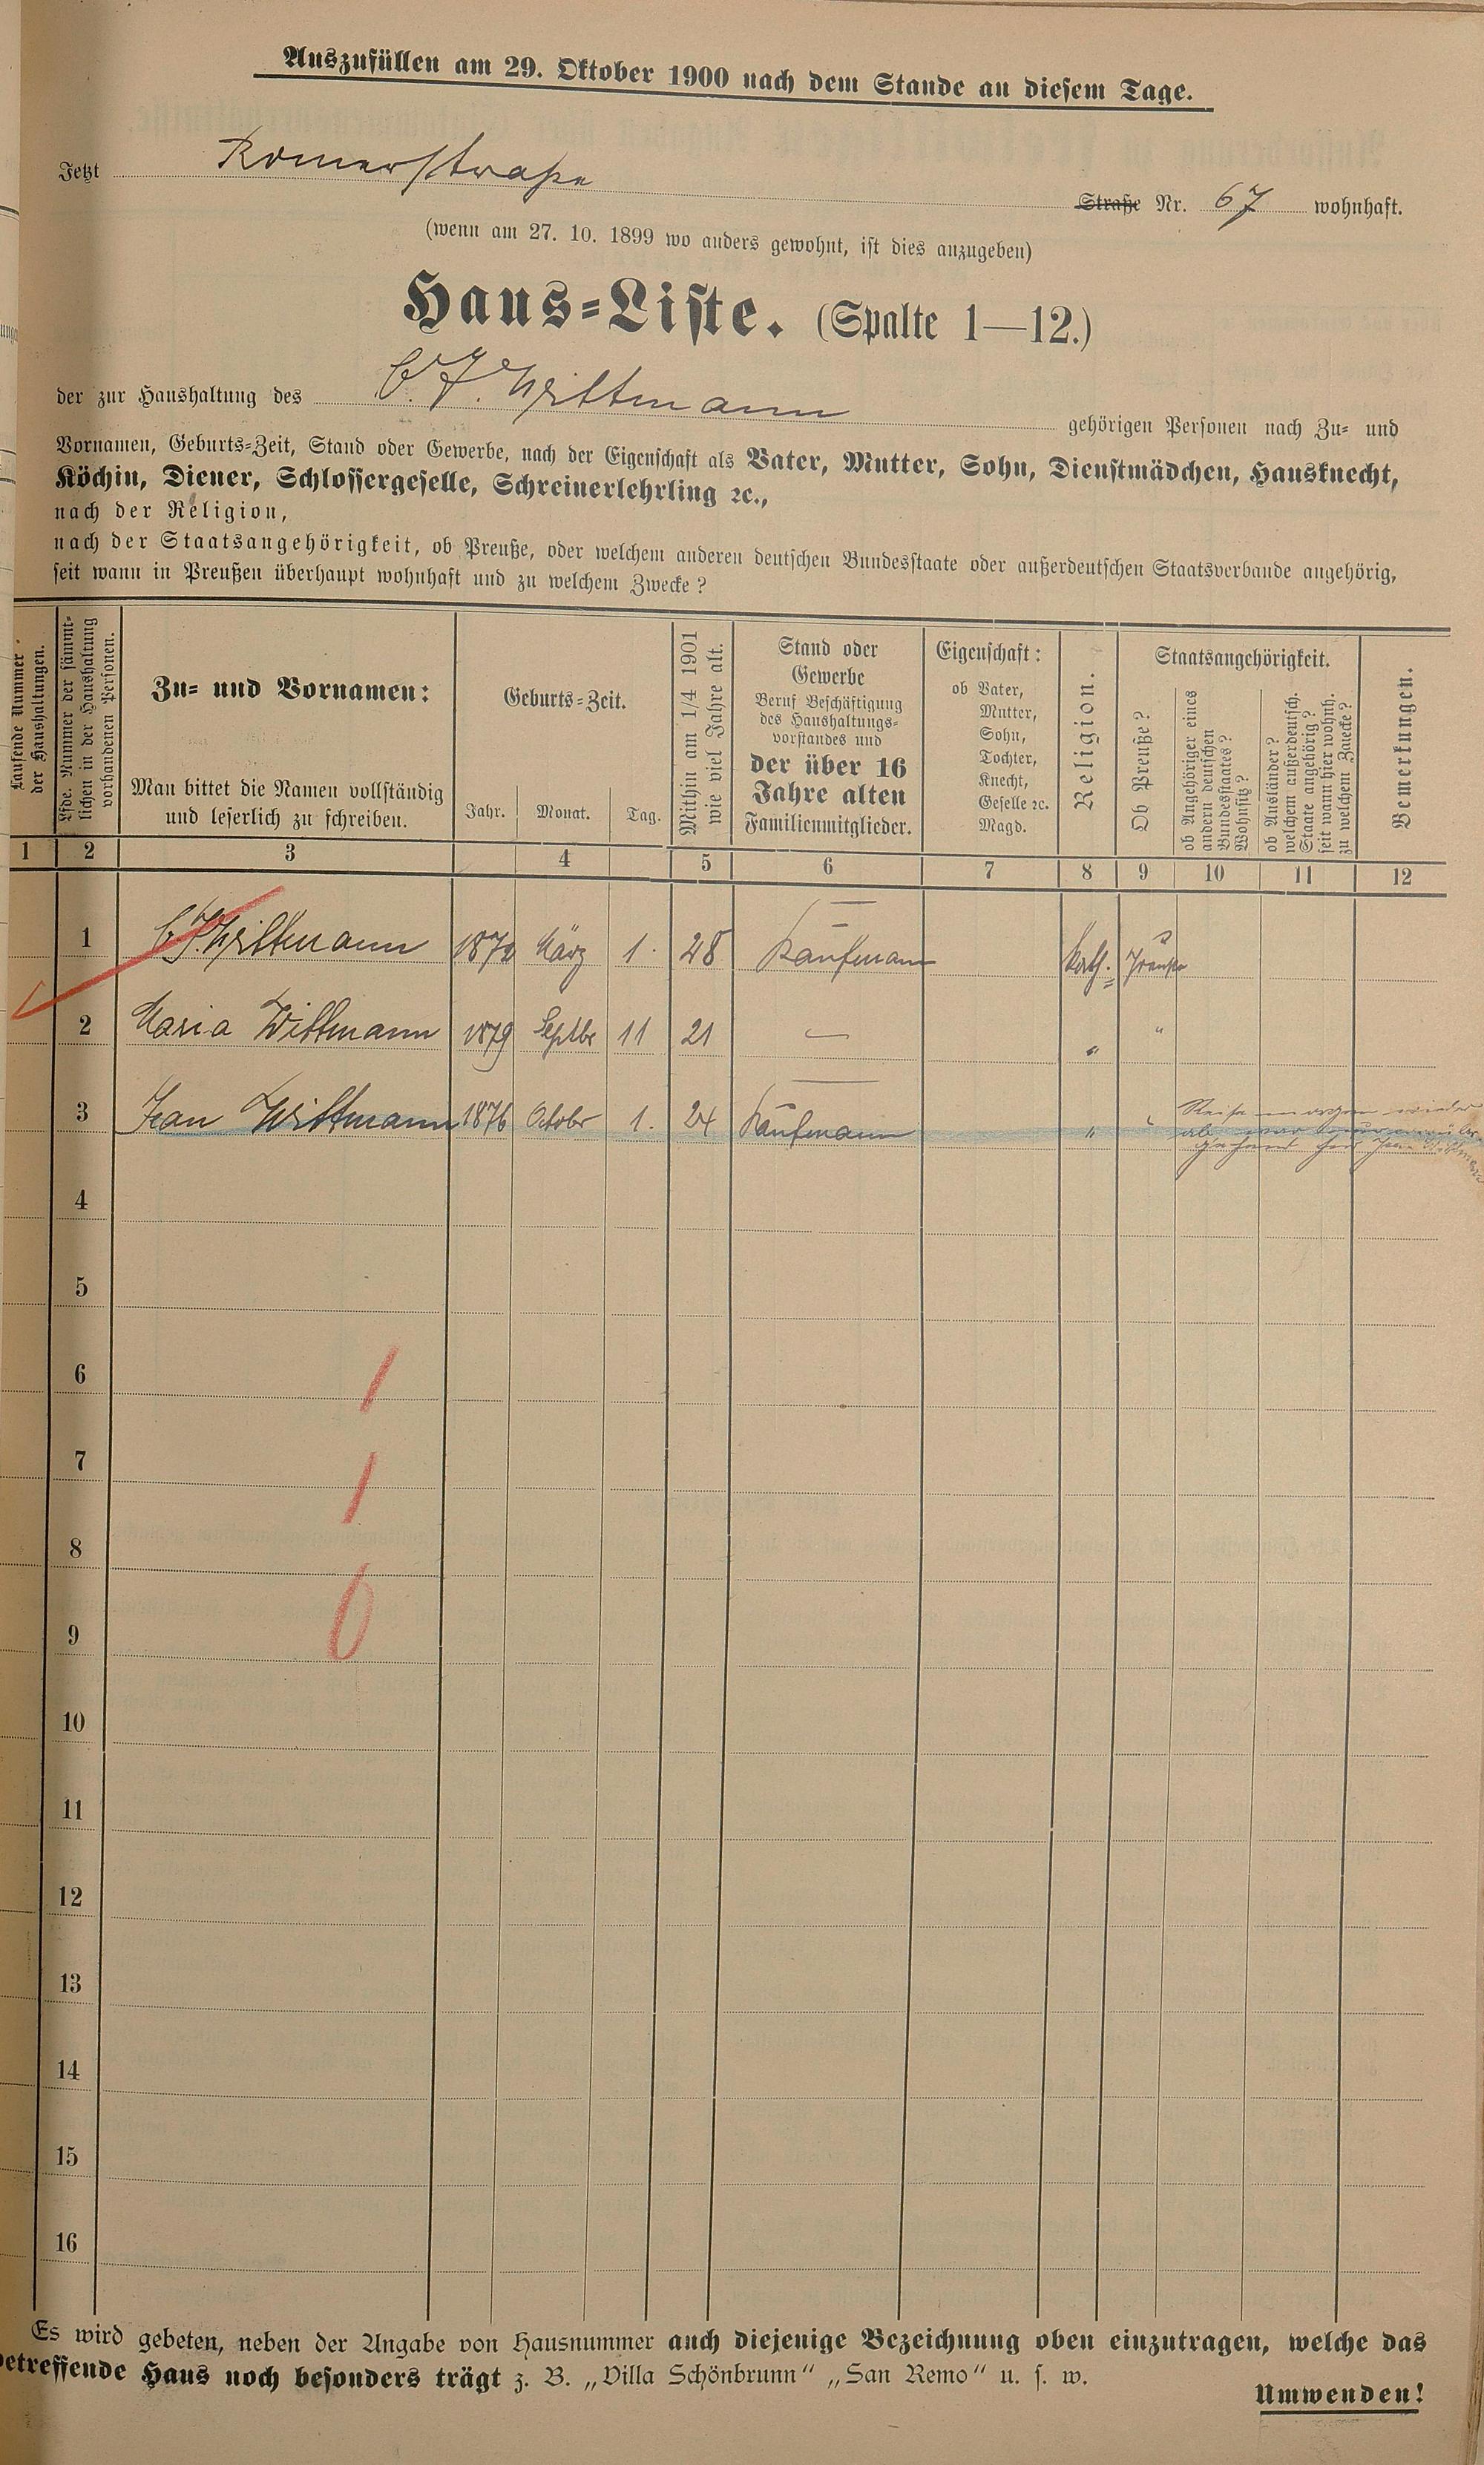 Auszufüllen am 29. Oktober 1900 nach dem Stande an diesem Tage.
Jetzt Romerstraße Straße Nr. 67 wohnhaft.
(wenn am 27. 10. 1899 wo anders gewohnt, ist dies anzugeben)
Haus-Liste. (Spalte 1—12.)
der zur Haushaltung des C. J. Wittmann gehörigen Personen nach Zu- und
Vornamen, Geburts-Zeit, Stand oder Gewerbe, nach der Eigenschaft als Vater, Mutter, Sohn, Dienstmädchen, Hausknecht,
Köchin, Diener, Schlossergeselle, Schreinerlehrling ꝛc.,
nach der Religion,
nach der Staatsangehörigkeit, ob Preuße, oder welchem anderen deutschen Bundesstaate oder außerdeutschen Staatsverbande angehörig,
seit wann in Preußen überhaupt wohnhaft und zu welchem Zwecke?
Laufende Nummer
der Haushaltungen.
Lfde. Nummer der sämmt-
lichen in der Haushaltung
vorhandenen Personen.
Zu- und Vornamen:
Man bittet die Namen vollständig
und leserlich zu schreiben.
Geburts-Zeit.
Jahr. Monat. Tag.
Mithin am 1/4 1901
wie viel Jahre alt.
Stand oder
Gewerbe
Beruf Beschäftigung
des Haushaltungs-
vorstandes und
der über 16
Jahre alten
Familienmitglieder.
Eigenschaft:
ob Vater,
Mutter,
Sohn,
Tochter,
Knecht,
Geselle ꝛc.
Magd.
Religion.
Staatsangehörigkeit.
Ob Preuße?
ob Angehöriger eines
andern deutschen
Bundesstaates?
Wohnsitz?
ob Ausländer?
welchem außerdeutsch.
Staate angehörig?
seit wann hier wohnh.
zu welchem Zwecke?
Bemerkungen.
1 2 3 4 5 6 7 8 9 10 11 12
1 C. J. Wittmann 1872 März 1. 28 Kaufmann Kath. Preuße
2 Maria Wittmann 1879 Septbr 11 21 — " "
3 Jean Wittmann 1876 Octobr 1. 24 Kaufmann " " Reise morgen wieder
ab war nur vorüber
gehend hier Jean Wittmann
4
5
6
7
8
9
10
11
12
13
14
15
16
1
1
0
Es wird gebeten, neben der Angabe von Hausnummer auch diejenige Bezeichnung oben einzutragen, welche das
betreffende Haus noch besonders trägt z. B. „Villa Schönbrunn“ „San Remo“ u. s. w.
Umwenden!